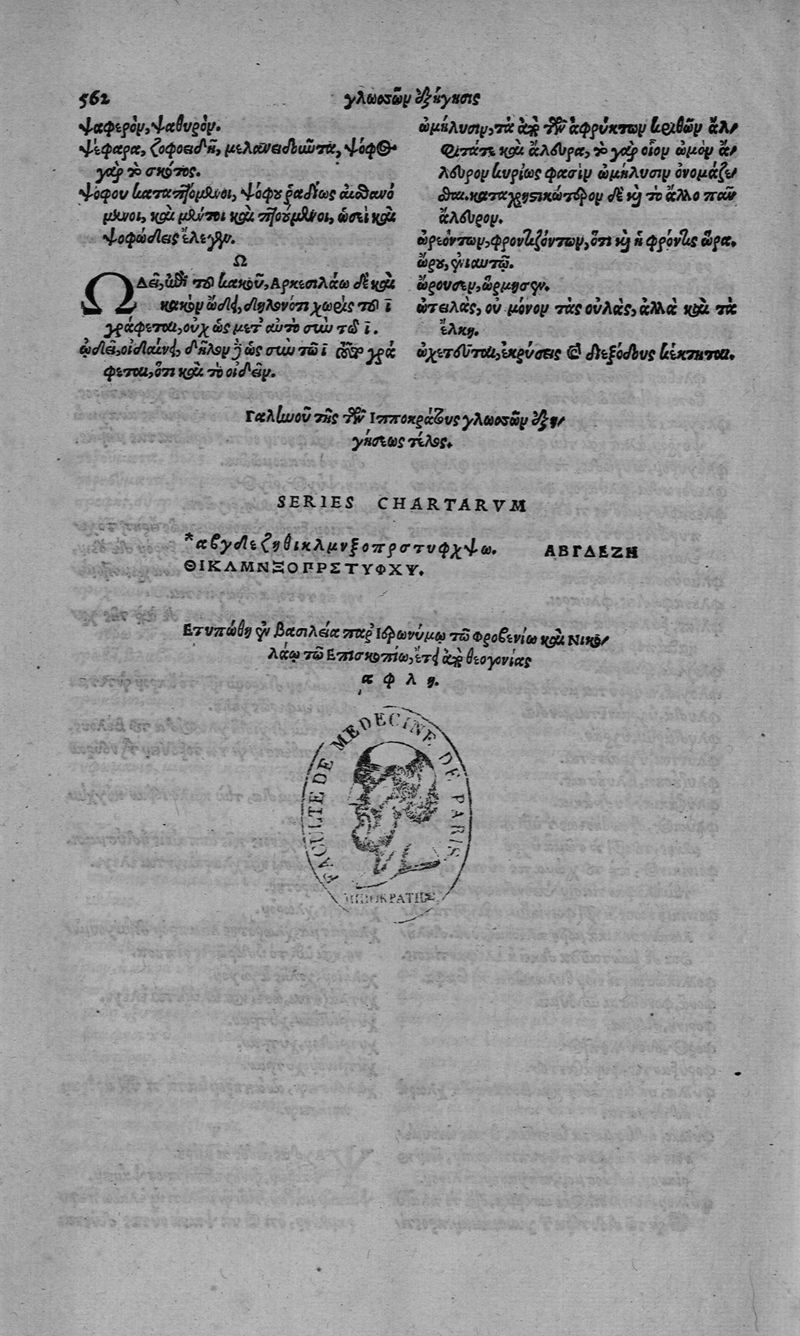 562 γλωσσῶν ἐξήγησις
ψαφερὸν, ψαθυρὸν.
ψέφαρα, ζοφοειδῆ, μελανειδιῶντα, ψόφος
γὰρ τὸ σκότος.
ψόφου καταπιομῶνοι, ψόφου ῥαδίως αἰσθανό
μῶνοι, καὶ
ψοφώδεις ἔλεγον.
Ω
ΩΔεῖ, τοῦ κακοῦ, Αρκεσιλάω δὲ καὶ
κακὸν ὤδει, δηλονότι χωρὶς τοῦ ϊ
γράφεται, οὐχ ὡς μετ' αὐτὸ σὺν τῶ ϊ.
ᾠδεῖ, οἰδαίνει, δῆλον ὡς σὺν τῶ ϊ γρά
φεται, ὅτι καὶ τὸ οἰδεῖν.
ὠμήλυσιν, τὰ ἀπὸ τῶν ἀφρύκτων κριθῶν ἄλ/
φιτάτε καὶ ἄλευρα, τὸ γὰρ οἷον ὠμὸν ἄ/
λευρον κυρίως φασὶν ὠμήλυσιν ὀνομάζε/
σθαι. καταχρηστικώτερον δὲ καὶ τὸ ἄλλο πᾶν
ἄλευρον.
ὠρεόντων, φροντιζόντων, ὅτι καὶ ἡ φρόντις ὥρα.
ὥρου, ἐνιαυτοῦ.
ὤρουσεν, ὥρμησεν.
ὠτειλὰς, οὐ μόνον τὰς οὐλὰς, ἀλλὰ καὶ τὰ
ἕλκη.
ὠχετεῦται, ἐκρύσεις καὶ διεξόδους κέκτηται.
Γαληνοῦ τῆς τῶν Ιπποκράτους γλωσσῶν ἐξη/
γήσεως τέλος.
SERIES CHARTARVM
*αβγδεζηθικλμνξοπρστυφχψω. ΑΒΓΔΕΖΗ
ΘΙΚΛΜΝΞΟΠΡΣΤΥΦΧΨ.
Ετυπώθη ἐν Βασιλεία παρ' Ιερωνύμω τῶ Φροβενίω καὶ Νικο/
λάω τῶ Επισκοπίω, ἔτει ἀπὸ θεογονίας
͵α φ λ η.
FACULTE DE MEDECINE DE PARIS
ΙΠΠΟΚΡΑΤΗΣ